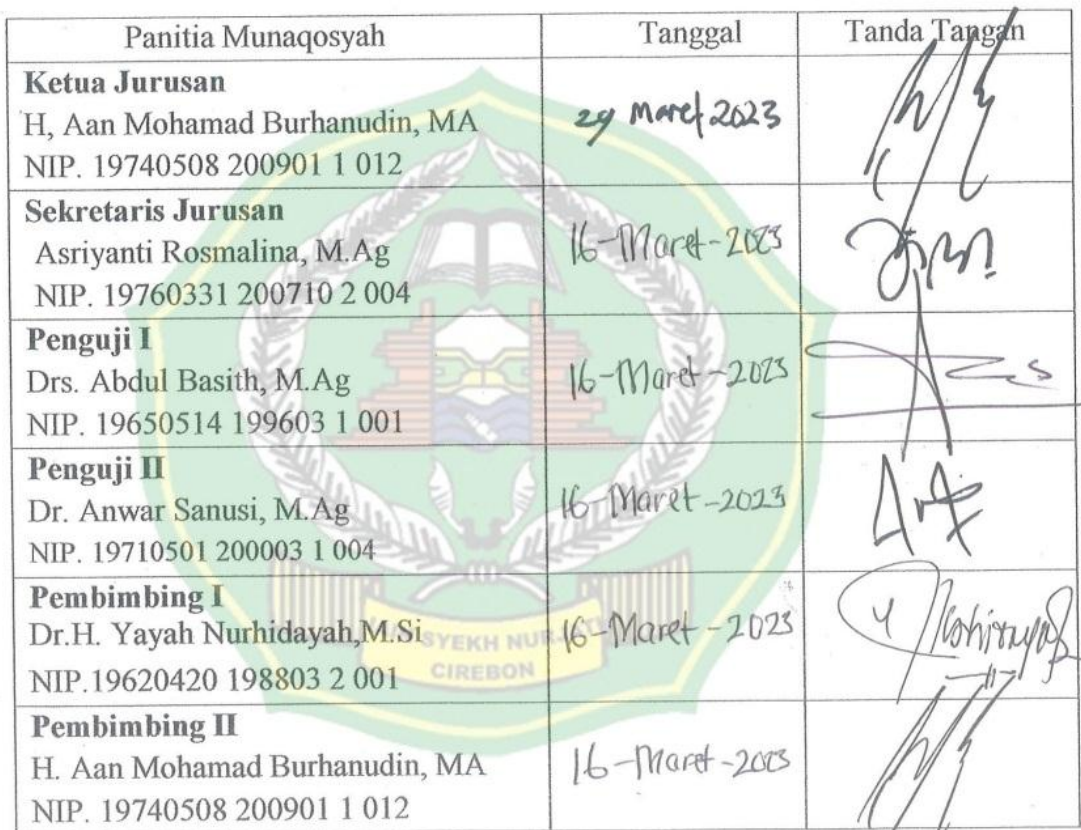 Panitia Munaqosyah Tanggal Tanda Tangan
Ketua Jurusan
H, Aan Mohamad Burhanudin, MA
NIP. 19740508 200901 1 012
29 Maret 2023
Sekretaris Jurusan
Asriyanti Rosmalina, M.Ag
NIP. 19760331 200710 2 004
16-Maret-2023
Penguji I
Drs. Abdul Basith, M.Ag
NIP. 19650514 199603 1 001
16-Maret-2023
Penguji II
Dr. Anwar Sanusi, M.Ag
NIP. 19710501 200003 1 004
16-Maret-2023
Pembimbing I
Dr.H. Yayah Nurhidayah,M.Si
NIP.19620420 198803 2 001
16-Maret-2023
SYEKH NURJATI
CIREBON
Pembimbing II
H. Aan Mohamad Burhanudin, MA
NIP. 19740508 200901 1 012
16-Maret-2023